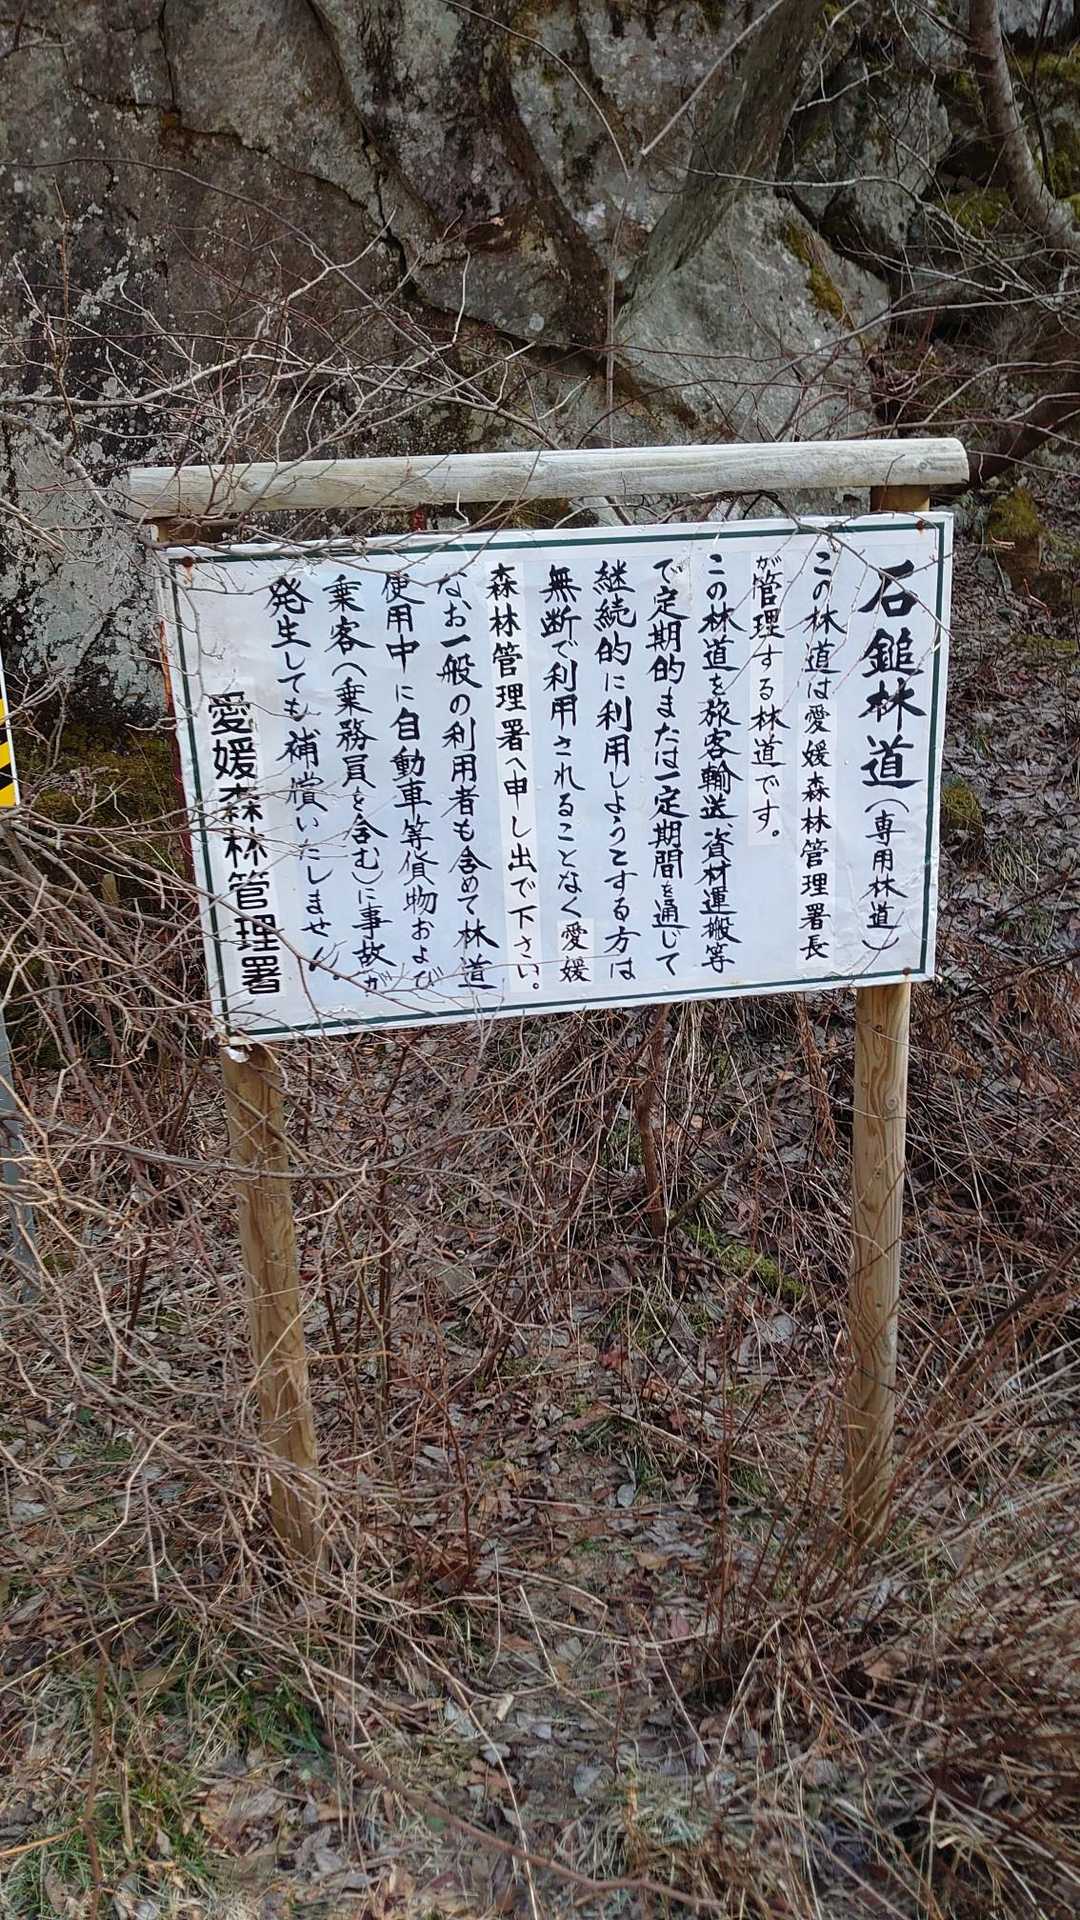 石鎚林道(専用林道)
この林道は愛媛森林管理署長
が管理する林道です。
この林道を旅客輸送、資材運搬等
で定期的または一定期間を通じて
継続的に利用しようとする方は
無断で利用されることなく愛媛
森林管理署へ申し出で下さい。
なお一般の利用者も含めて林道
使用中に自動車等貨物および
乗客(乗務員を含む)に事故が
発生しても補償いたしません
愛媛森林管理署